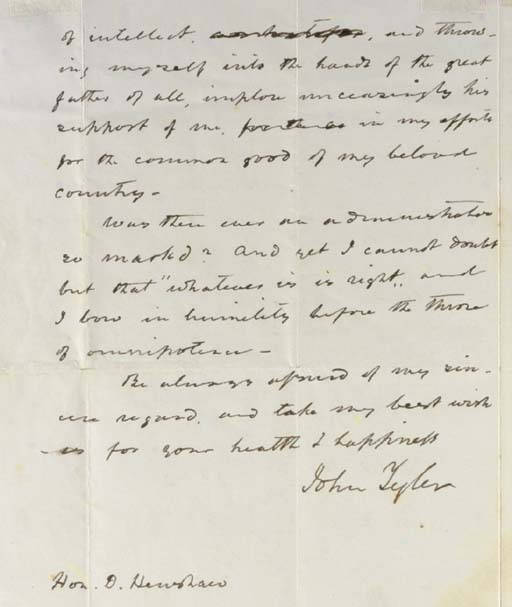 of intellect, , and throw-
ing myself into the hands of the great
father of all, implore unceasingly his
support of me, in my efforts
for the common good of my beloved
country -
Was there ever an administration
so mark'd? And yet I cannot doubt
but that "whatever is is right", and
I bow in humility before the throne
of omnipotence -
Be always assured of my sin-
cere regard, and take my best wish
-es for your health & happiness
John Tyler
Hon. D. Henshaw